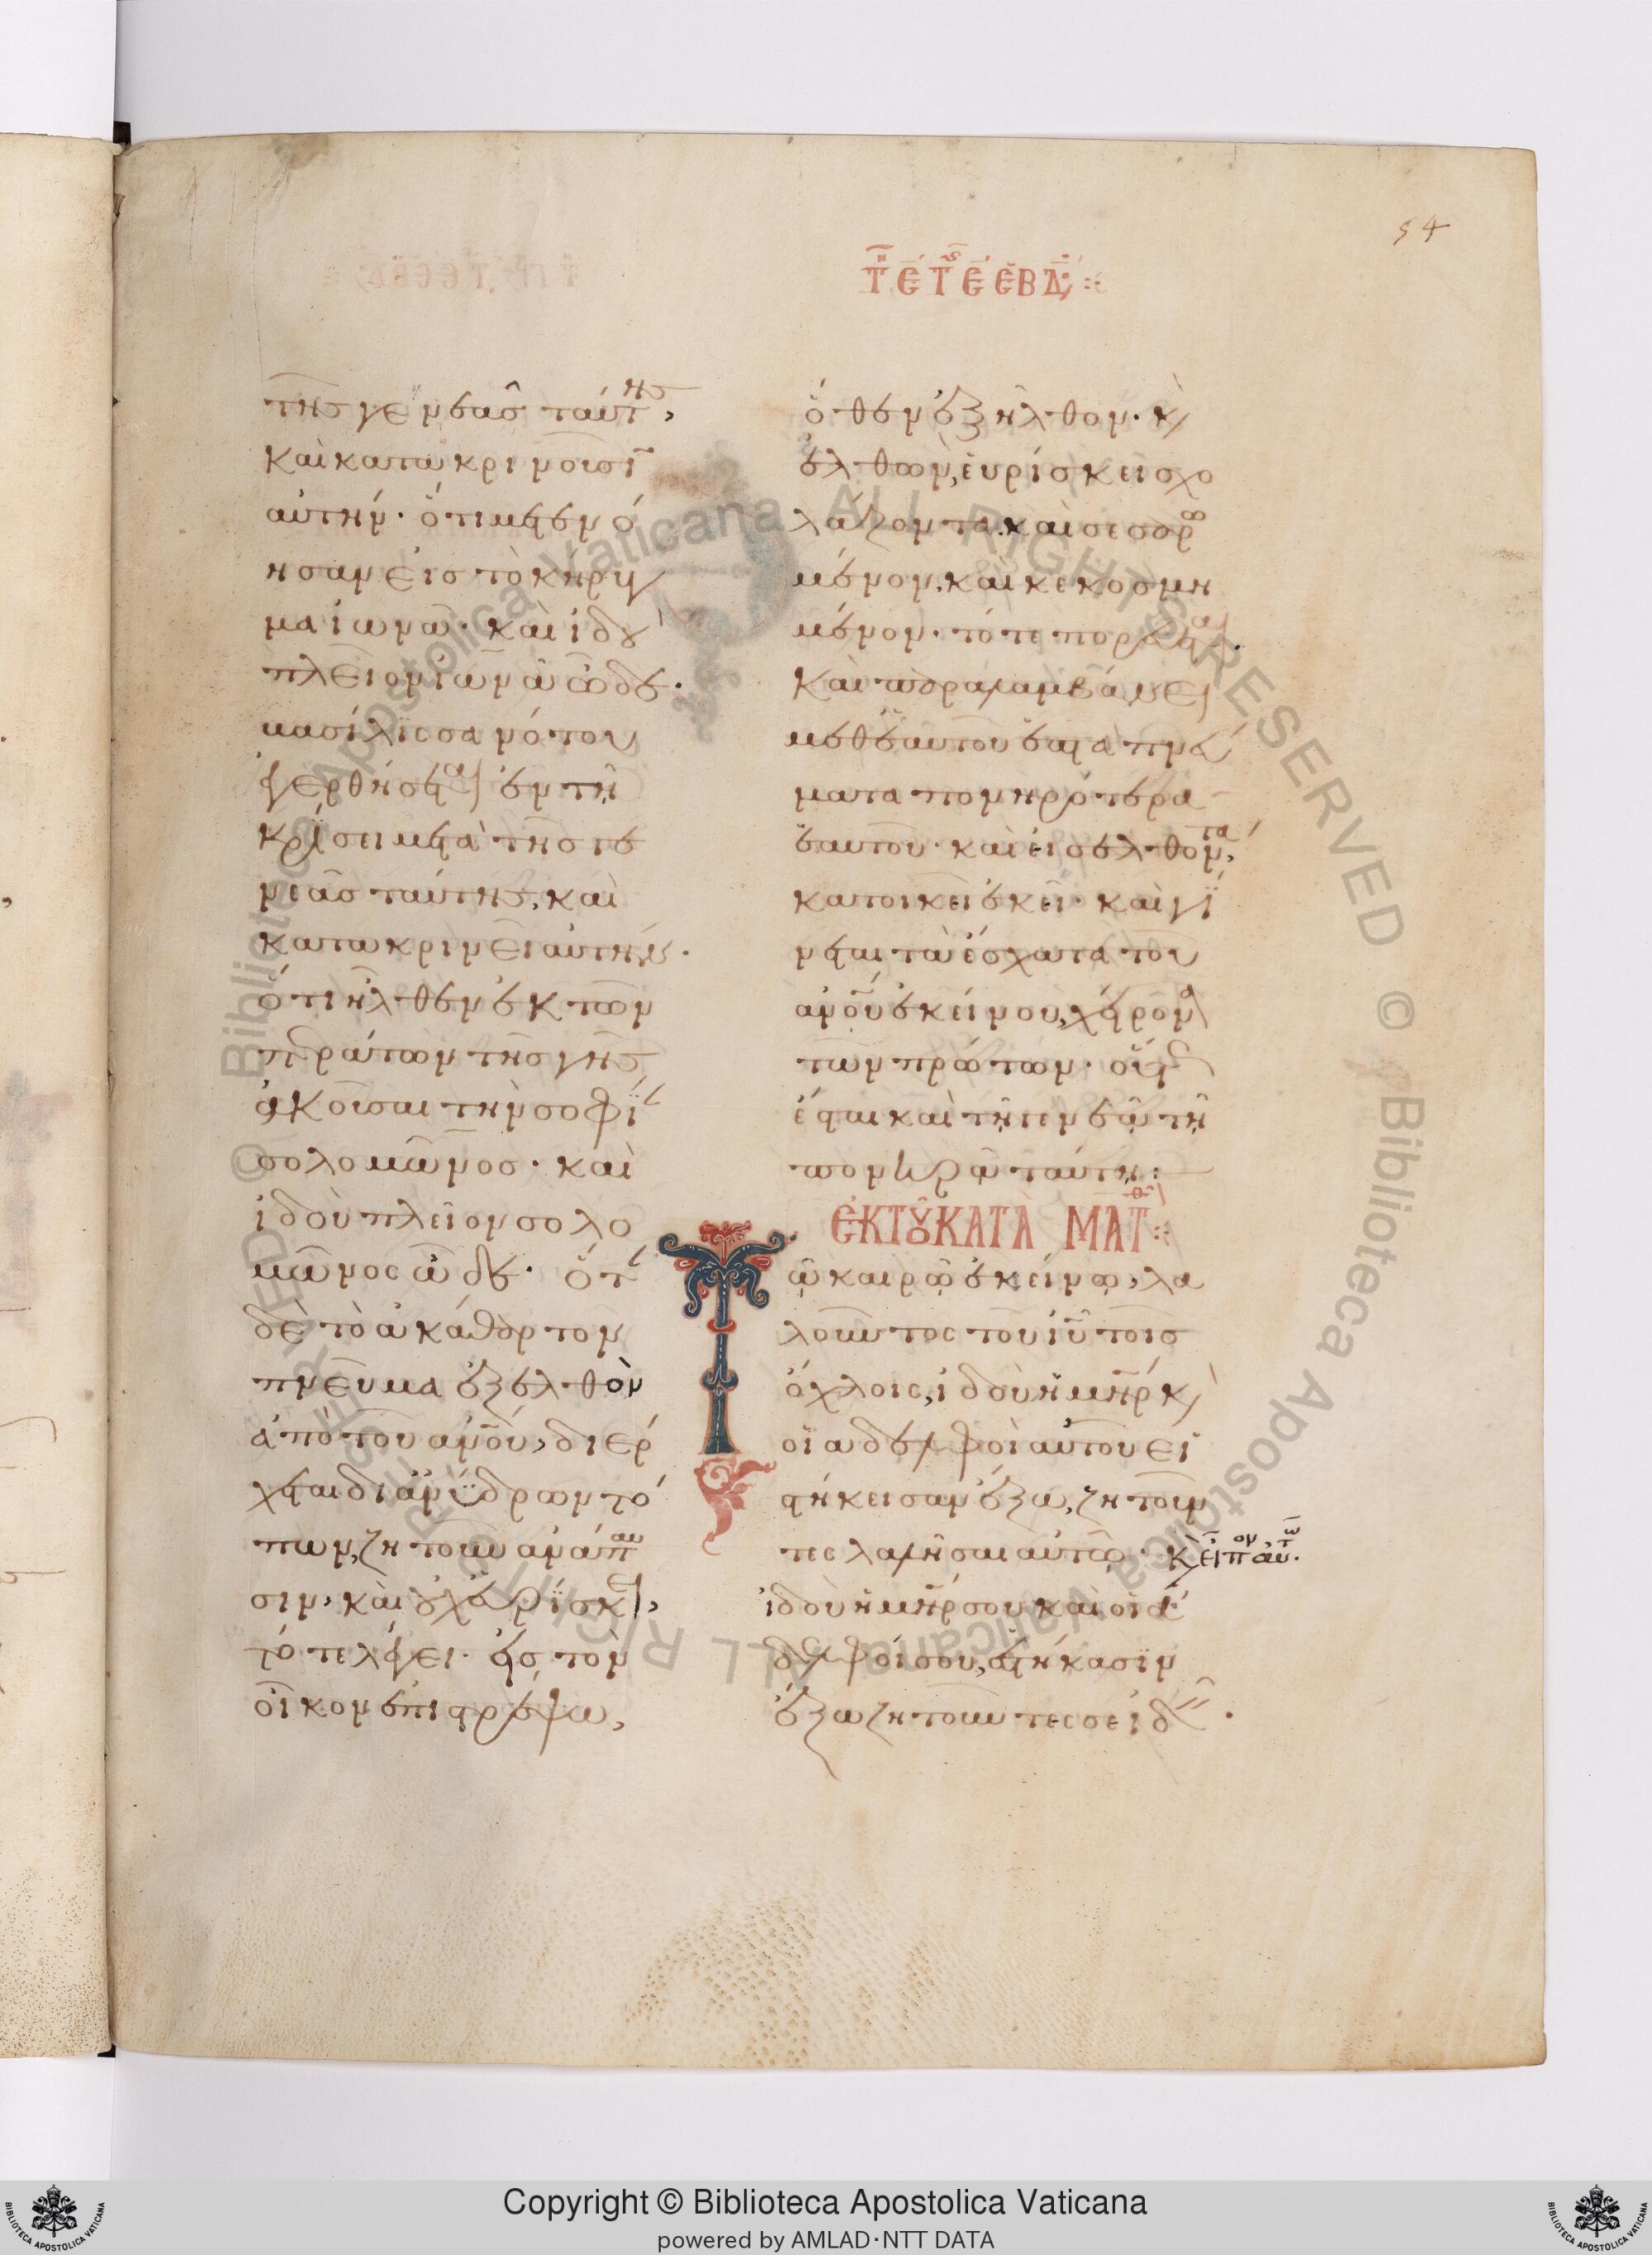 54
Τῆ Ε Τῆς Ε ΕΒΔ
τῆς γενεᾶς ταύτης,
καὶ κατακρινοῦσιν
αὐτήν· ὅτι μετενό
ησαν εἰς τὸ κήρυγ
μα ἰωνᾶ· καὶ ἰδοὺ
πλεῖον ἰωνᾶ ὧδε·
βασίλισσα νότου
ἐγερθήσεται ἐν τῆ
κρίσει μετὰ τῆς γε
νεᾶς ταύτης, καὶ
κατακρινεῖ αὐτήν·
ὅτι ἦλθεν ἐκ τῶν
περάτων τῆς γῆς
ἀκοῦσαι τὴν σοφί
σολομῶνος· καὶ
ἰδοὺ πλεῖον σολο
μῶνος ὧδε· ὅτ
δὲ τὸ ἀκάθαρτον
πνεῦμα ἐξελθὸν
ἀπὸ τοῦ ἀνου, διέρ
χεται δι ἀνύδρων τό
πων, ζητοῦν ἀνάπαυ
σιν, καὶ οὐχ εὑρίσκει,
τότε λέγει· εἰς τὸν
οἶκον ἐπιστρέψω,
ὅθεν ἐξῆλθον· κ
ἐλθὼν, εὑρίσκει σχο
λάζοντα· καὶ σεσαρω
μένον, καὶ κεκοσμη
μένον· τότε πορεύεται·
καὶ παραλαμβάνει
μεθ ἑαυτοῦ ἑπτὰ πνεύ
ματα πονηρότερα
ἑαυτοῦ· καὶ εἰσελθόντα,
κατοικεῖ ἐκεῖ· καὶ γί
νεται τὰ ἔσχατα τοῦ
ἀνου ἐκείνου, χείρονα
τῶν πρώτων· οὕτως
ἔσται καὶ τῆ γενεᾷ τῆ
πονηρᾷ ταύτη:
ἐΚ ΤΟῦ ΚΑΤᾺ ΜΑΤΘ
Τῷ καιρῷ ἐκείνῳ, λα
λοῦντος τοῦ ἰυ τοῖς
ὄχλοις, ἰδοὺ ἡ μηρ κ
οἱ ἀδελφοὶ αὐτοῦ εἱ
στήκεισαν ἔξω, ζητοῦν
τες λαλῆσαι αὐτῷ· κ εἶπον αὐτῶ·
ἰδοὺ ἡ μηρ σου καὶ οἱ ἀ
δελφοί σου, ἑστήκασιν
ἔξω ζητοῦντές σε ἰδεῖν·
Copyright © Biblioteca Apostolica Vaticana
powered by AMLAD·NTT DATA
Biblioteca Apostolica Vaticana ALL RIGHTS RESERVED ©
Biblioteca Apostolica Vaticana ALL RIGHTS RESERVED ©
BIBLIOTECA APOSTOLICA VATICANA
BIBLIOTECA APOSTOLICA VATICANA